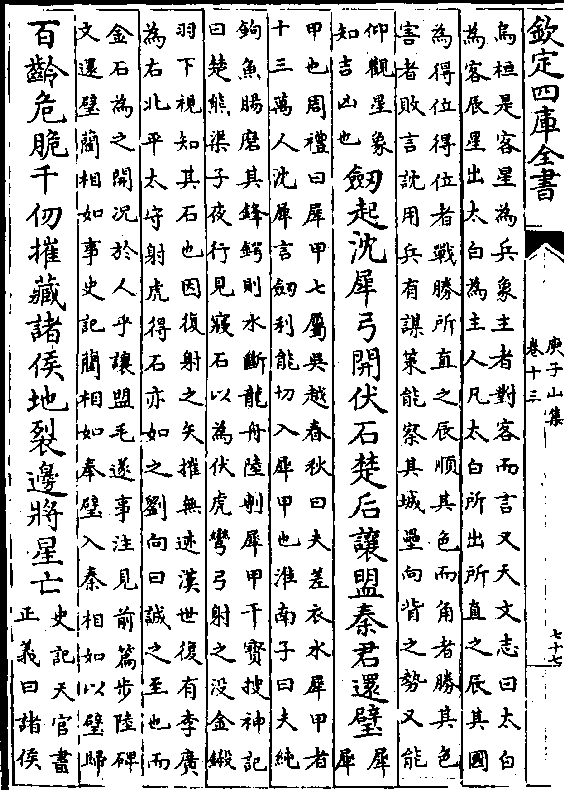 欽定四庫全書
庚子山集
卷十三
七十七
烏桓是客星為兵象主者對客而言又天文志曰太白
為客辰星出太白為主人凡太白所出所直之辰其國
為得位得位者戰勝所直之辰順其色而角者勝其色
害者敗言詵用兵有謀策能察其城壘向背之勢又能
仰觀星象
知吉凶也
劒起沈犀弓開伏石楚后讓盟秦君還璧
犀
犀
甲也周禮曰犀甲七屬吳越春秋曰夫差衣水犀甲者
十三萬人沈犀言劒利能切入犀甲也淮南子曰夫純
鈎魚腸磨其鋒鍔則水斷龍舟陸剸犀甲干寶搜神記
曰楚熊渠子夜行見寢石以為伏虎彎弓射之沒金鎩
羽下視知其石也因復射之矢摧無迹漢世復有李廣
為右北平太守射虎得石亦如之劉向曰誠之至也而
金石為之開況於人乎讓盟毛遂事注見前篇步陸碑
文還璧藺相如事史記藺相如奉璧入秦相如以璧歸
百齡危脆千仞摧藏諸侯地裂邊將星亡
史記天官書
正義曰諸侯